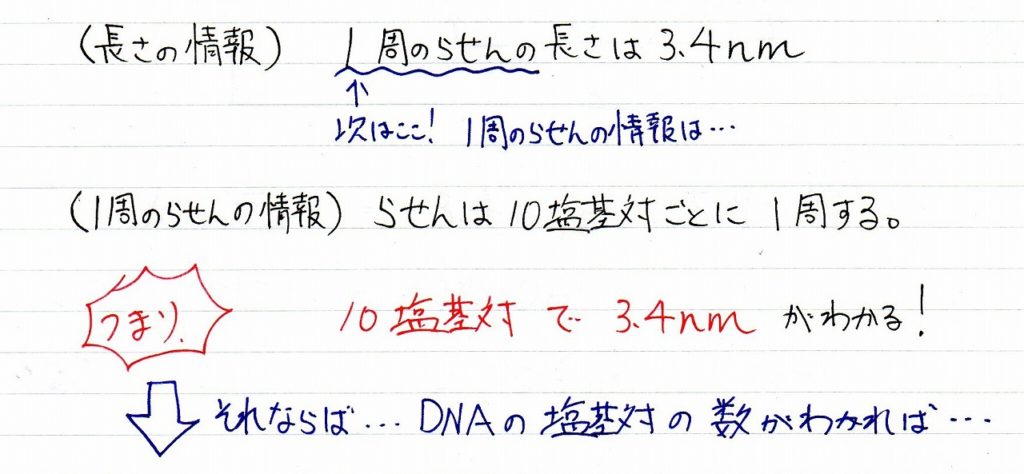 (長さの情報) 1周のらせんの長さは3.4nm
↑
次はここ! 1周のらせんの情報は…
(1周のらせんの情報) らせんは10塩基対ごとに1周する。
つまり、 10塩基対で3.4nmがわかる!
それならば…DNAの塩基対の数がわかれば…